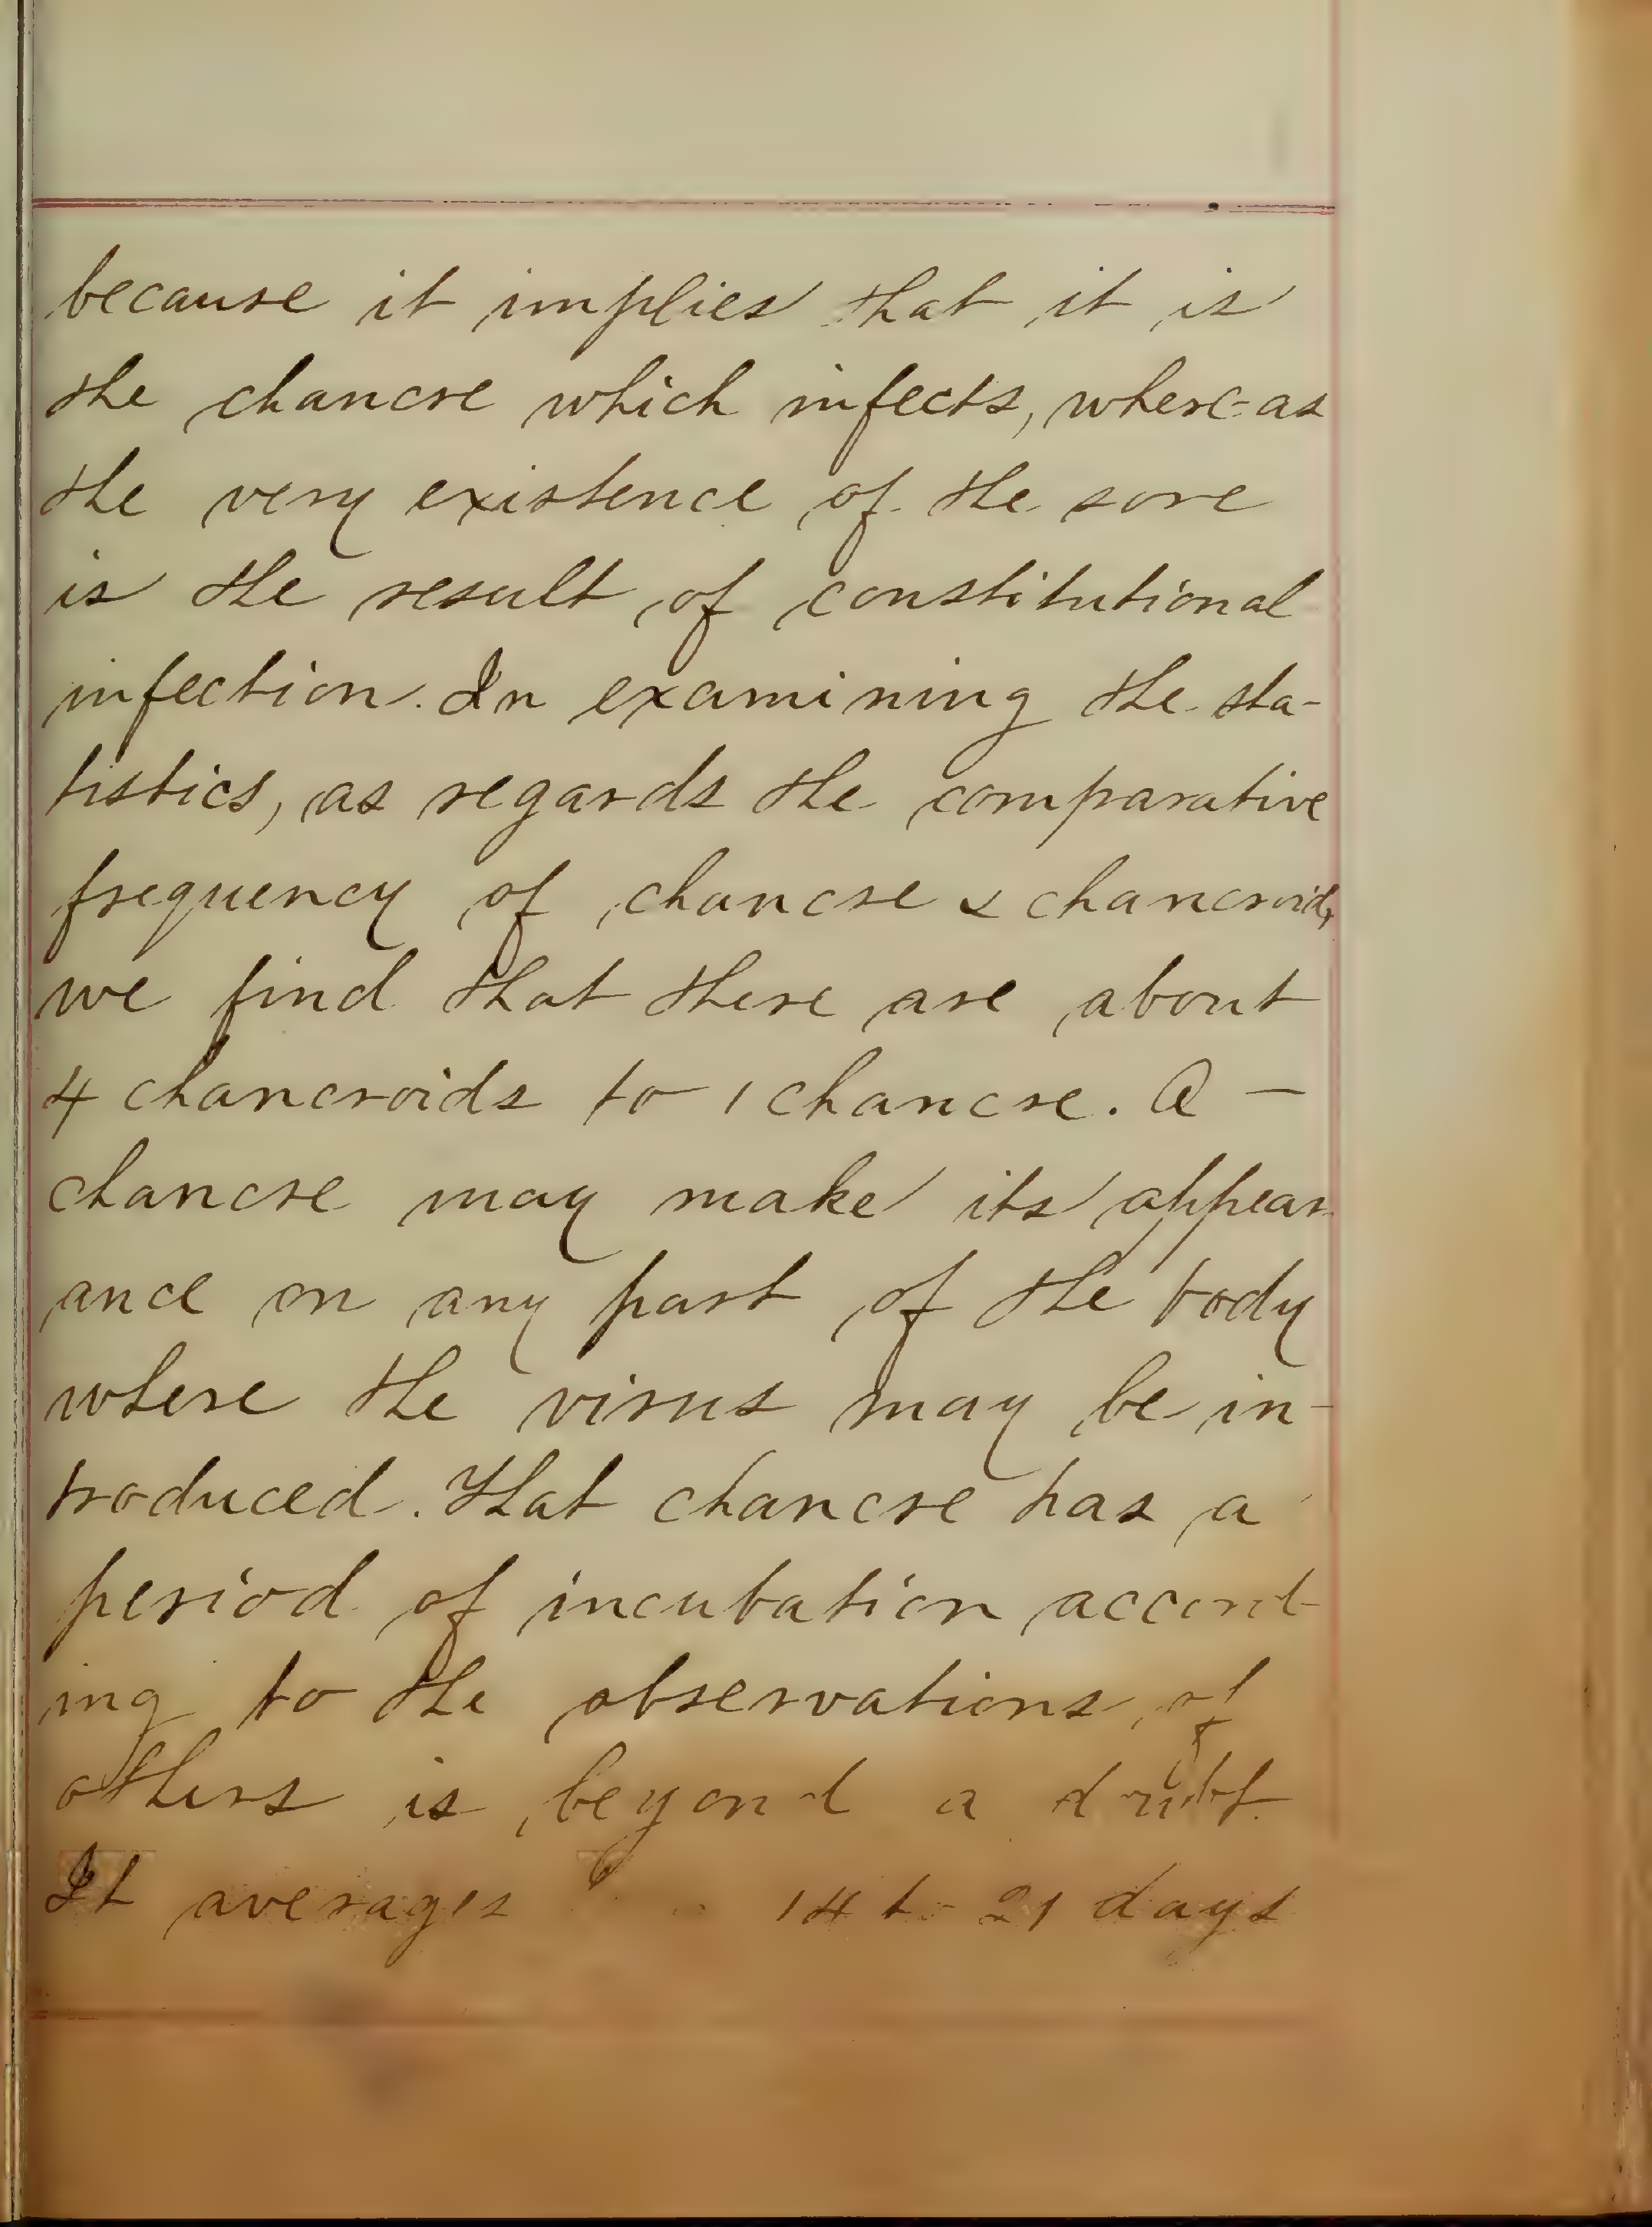 because it implies that it is
the chancre which infects, where-as
the very existence of the sore
is the result of constitutional
infection. In examining the sta-
tistics, as regards the comparative
frequency of chancre & chancroid,
we find that there are about
4 chancroids to 1 chancre. A —
chancre may make its appear-
ance on any part of the body
where the virus may be in-
troduced. That chancre has a
period of incubation accord-
ing to the observations of
others is beyond a doubt.
It averages 14 to 21 days